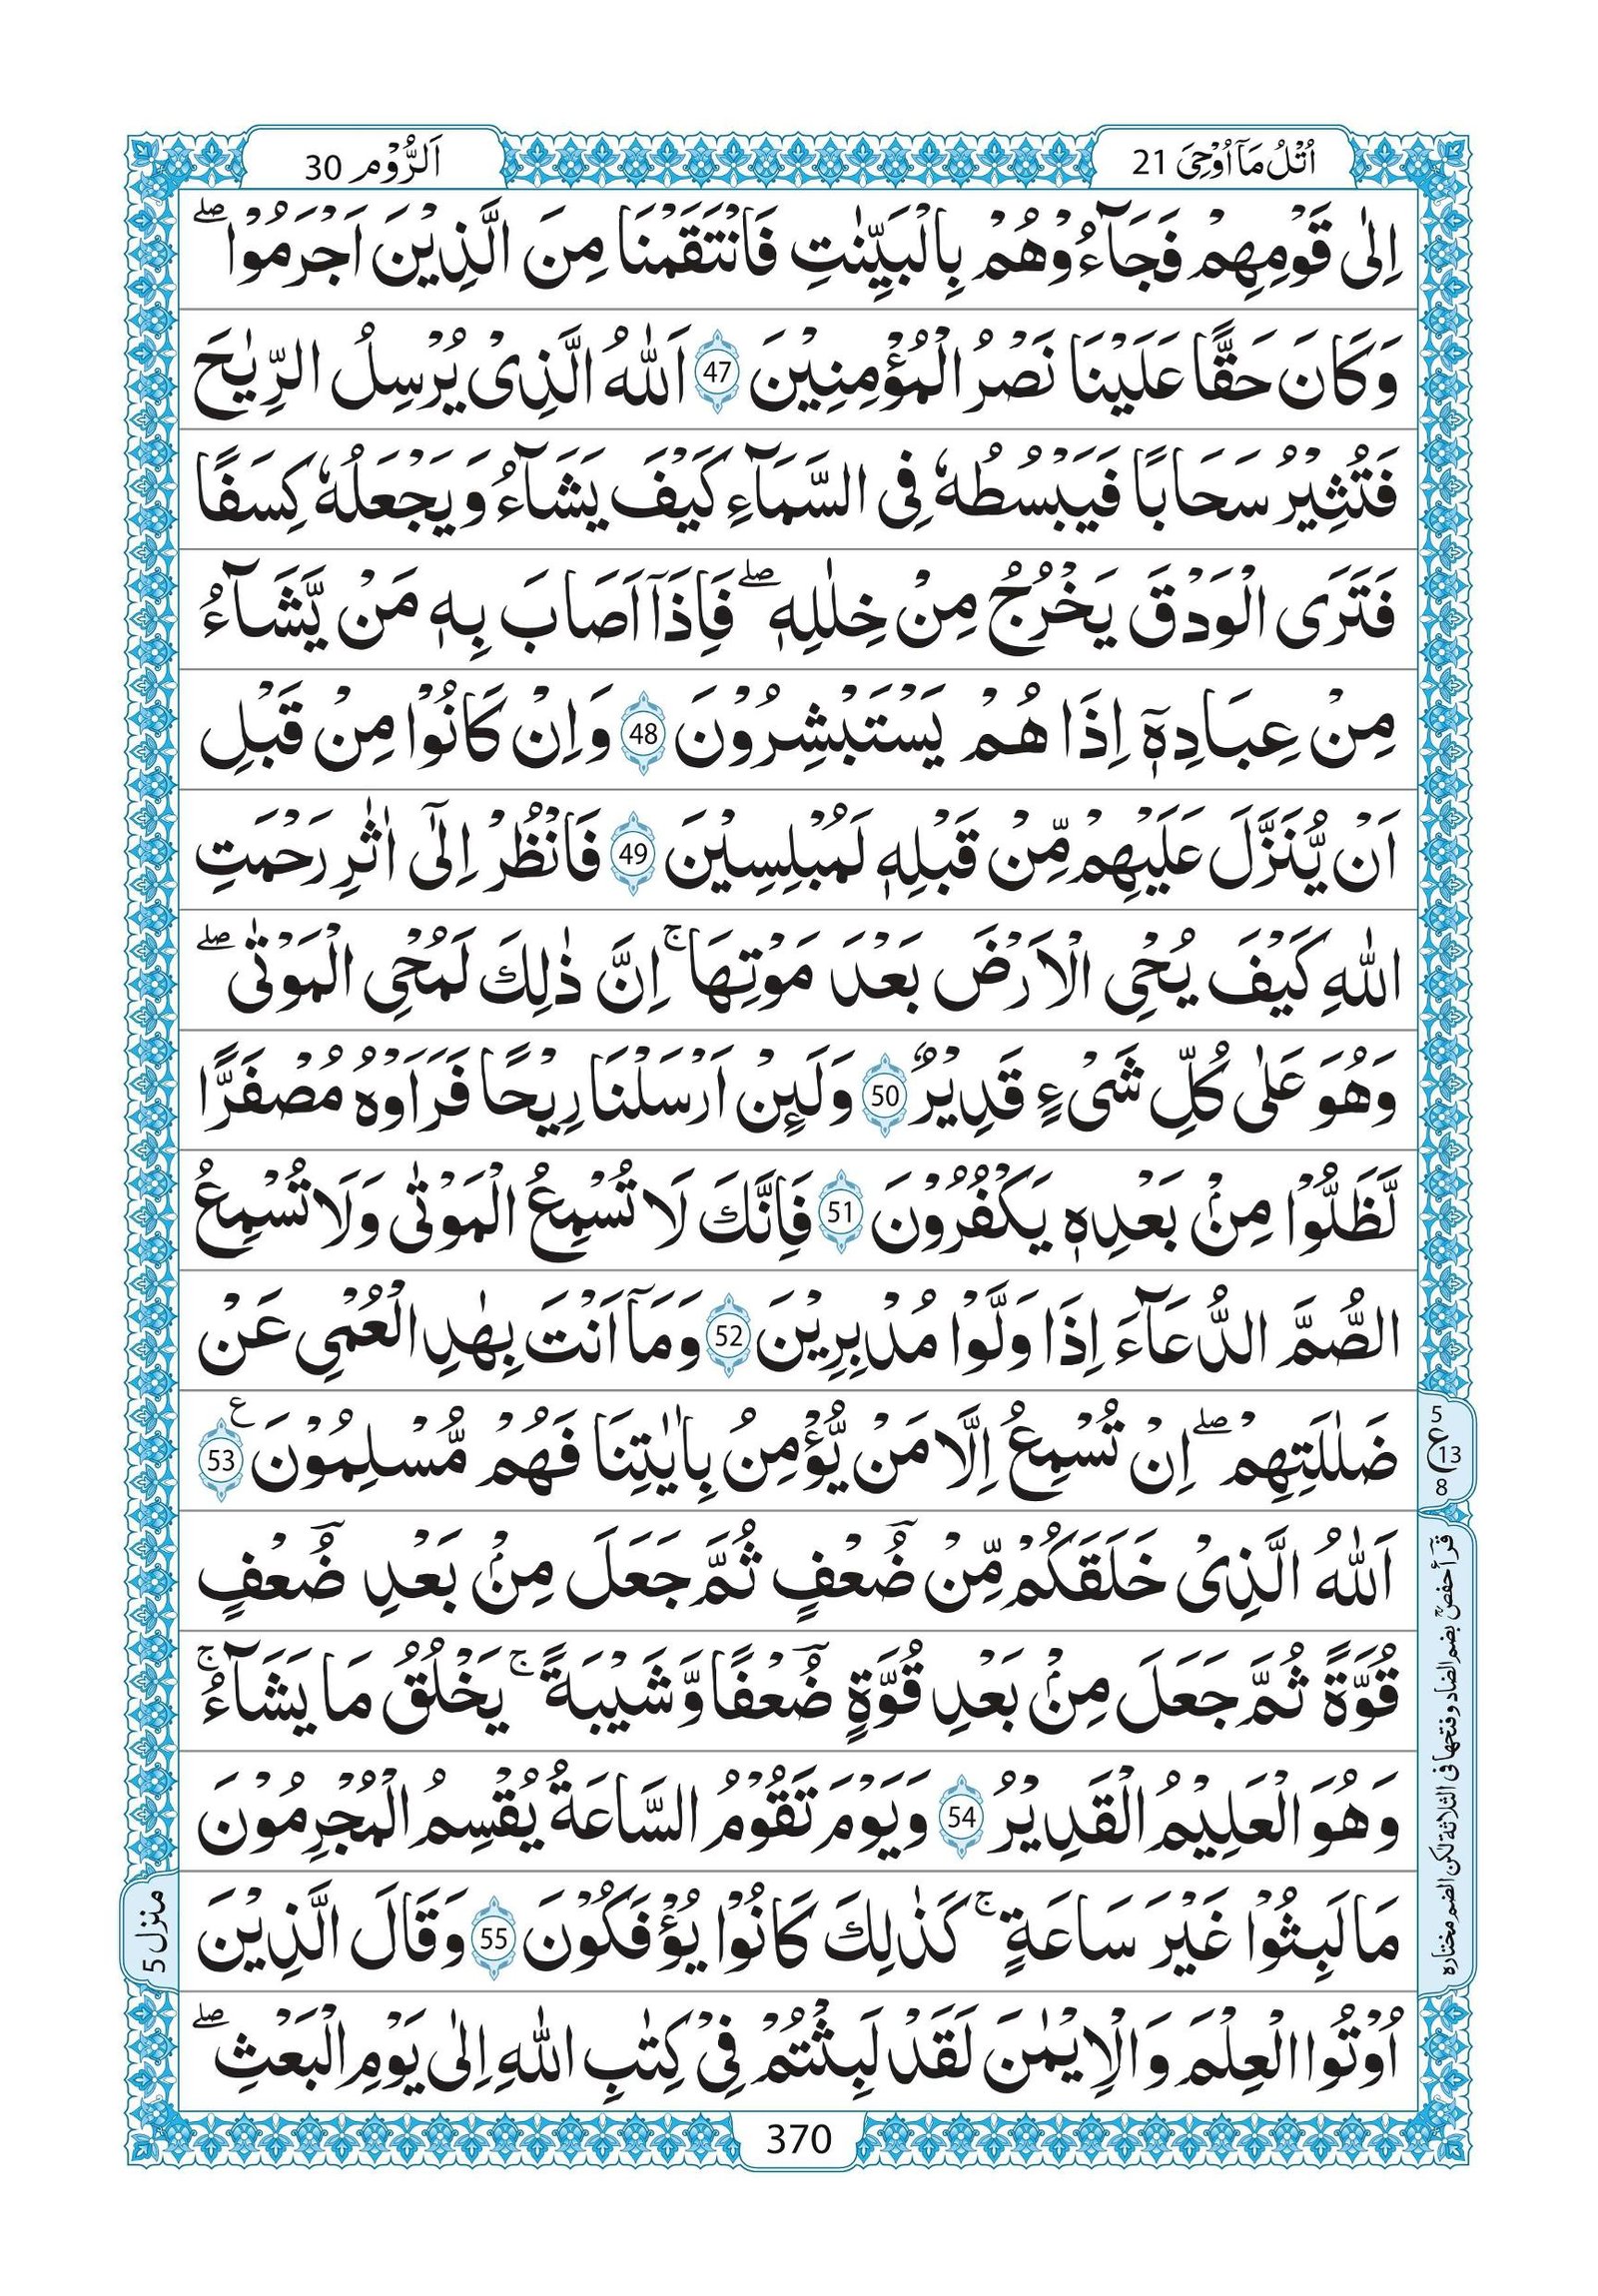 اُتْلُ مَاۤ اُوْحِیَ 21
اَلرُّوْم 30
اِلٰى قَوْمِهِمْ فَجَآءُوْهُمْ بِالْبَيِّنٰتِ فَانْتَقَمْنَا مِنَ الَّذِيْنَ اَجْرَمُوْا ۖ
وَكَانَ حَقًّا عَلَيْنَا نَصْرُ الْمُؤْمِنِيْنَ 47 اَللّٰهُ الَّذِىْ يُرْسِلُ الرِّيٰحَ
فَتُثِيْرُ سَحَابًا فَيَبْسُطُهٗ فِى السَّمَآءِ كَيْفَ يَشَآءُ وَيَجْعَلُهٗ كِسَفًا
فَتَرَى الْوَدْقَ يَخْرُجُ مِنْ خِلٰلِهٖ ۖ فَاِذَآ اَصَابَ بِهٖ مَنْ يَّشَآءُ
مِنْ عِبَادِهٖٓ اِذَا هُمْ يَسْتَبْشِرُوْنَ 48 وَاِنْ كَانُوْا مِنْ قَبْلِ
اَنْ يُّنَزَّلَ عَلَيْهِمْ مِّنْ قَبْلِهٖ لَمُبْلِسِيْنَ 49 فَانْظُرْ اِلٰٓى اٰثٰرِ رَحْمَتِ
اللّٰهِ كَيْفَ يُحْىِ الْاَرْضَ بَعْدَ مَوْتِهَا ۚ اِنَّ ذٰلِكَ لَمُحْىِ الْمَوْتٰى ۖ
وَهُوَ عَلٰى كُلِّ شَىْءٍ قَدِيْرٌ 50 وَلَئِنْ اَرْسَلْنَا رِيْحًا فَرَاَوْهُ مُصْفَرًّا
لَّظَلُّوْا مِنْۢ بَعْدِهٖ يَكْفُرُوْنَ 51 فَاِنَّكَ لَا تُسْمِعُ الْمَوْتٰى وَلَا تُسْمِعُ
الصُّمَّ الدُّعَآءَ اِذَا وَلَّوْا مُدْبِرِيْنَ 52 وَمَآ اَنْتَ بِهٰدِ الْعُمْىِ عَنْ
ضَلٰلَتِهِمْ ۖ اِنْ تُسْمِعُ اِلَّا مَنْ يُّؤْمِنُ بِاٰيٰتِنَا فَهُمْ مُّسْلِمُوْنَ 53 ع
اَللّٰهُ الَّذِىْ خَلَقَكُمْ مِّنْ ضُؔعْفٍ ثُمَّ جَعَلَ مِنْۢ بَعْدِ ضُؔعْفٍ
قُوَّةً ثُمَّ جَعَلَ مِنْۢ بَعْدِ قُوَّةٍ ضُؔعْفًا وَّشَيْبَةً ۚ يَخْلُقُ مَا يَشَآءُ ۚ
وَهُوَ الْعَلِيْمُ الْقَدِيْرُ 54 وَيَوْمَ تَقُوْمُ السَّاعَةُ يُقْسِمُ الْمُجْرِمُوْنَ
مَا لَبِثُوْا غَيْرَ سَاعَةٍ ۚ كَذٰلِكَ كَانُوْا يُؤْفَكُوْنَ 55 وَقَالَ الَّذِيْنَ
اُوْتُوا الْعِلْمَ وَالْاِيْمٰنَ لَقَدْ لَبِثْتُمْ فِىْ كِتٰبِ اللّٰهِ اِلٰى يَوْمِ الْبَعْثِ ۖ
5
ع
13
8
قرأ حفصؒ بضم الضاد وفتحها فی الثلاثة لکن الضم مختارہ
منزل 5
370